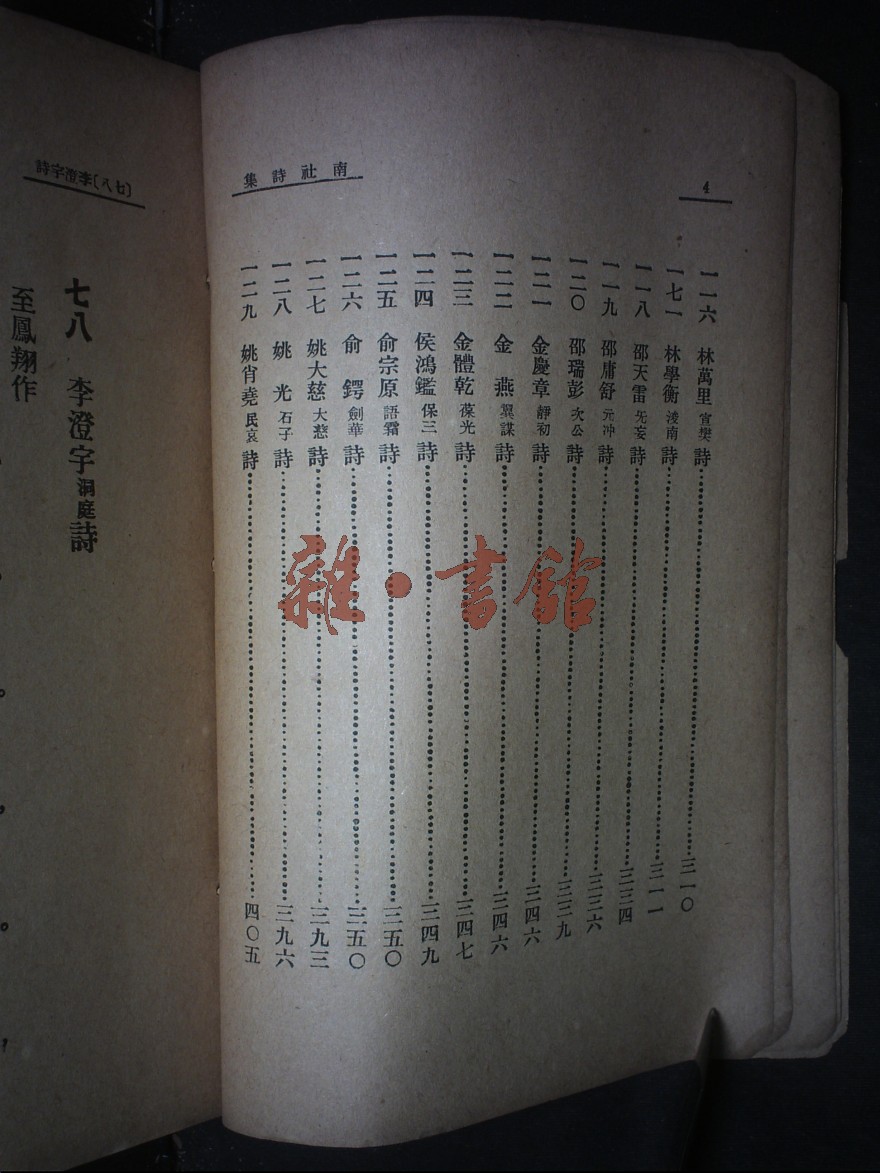 南社詩集
4
一一六 林萬里 宣樊 詩 三一〇
一七一 林學衡 浚南 詩 三一一
一一八 邵天雷 旡妄 詩 三三四
一一九 邵庸舒 元冲 詩 三三六
一二〇 邵瑞彭 次公 詩 三三九
一二一 金慶章 靜初 詩 三四六
一二二 金燕 翼謀 詩 三四六
一二三 金體乾 葆光 詩 三四七
一二四 侯鴻鑑 保三 詩 三四九
一二五 俞宗原 語霜 詩 三五〇
一二六 俞鍔 劍華 詩 三五〇
一二七 姚大慈 大慈 詩 三九三
一二八 姚光 石子 詩 三九六
一二九 姚肖堯 民哀 詩 四〇五
(七八)李澄宇詩
七八 李澄宇 洞庭 詩
至鳳翔作
雜·書館